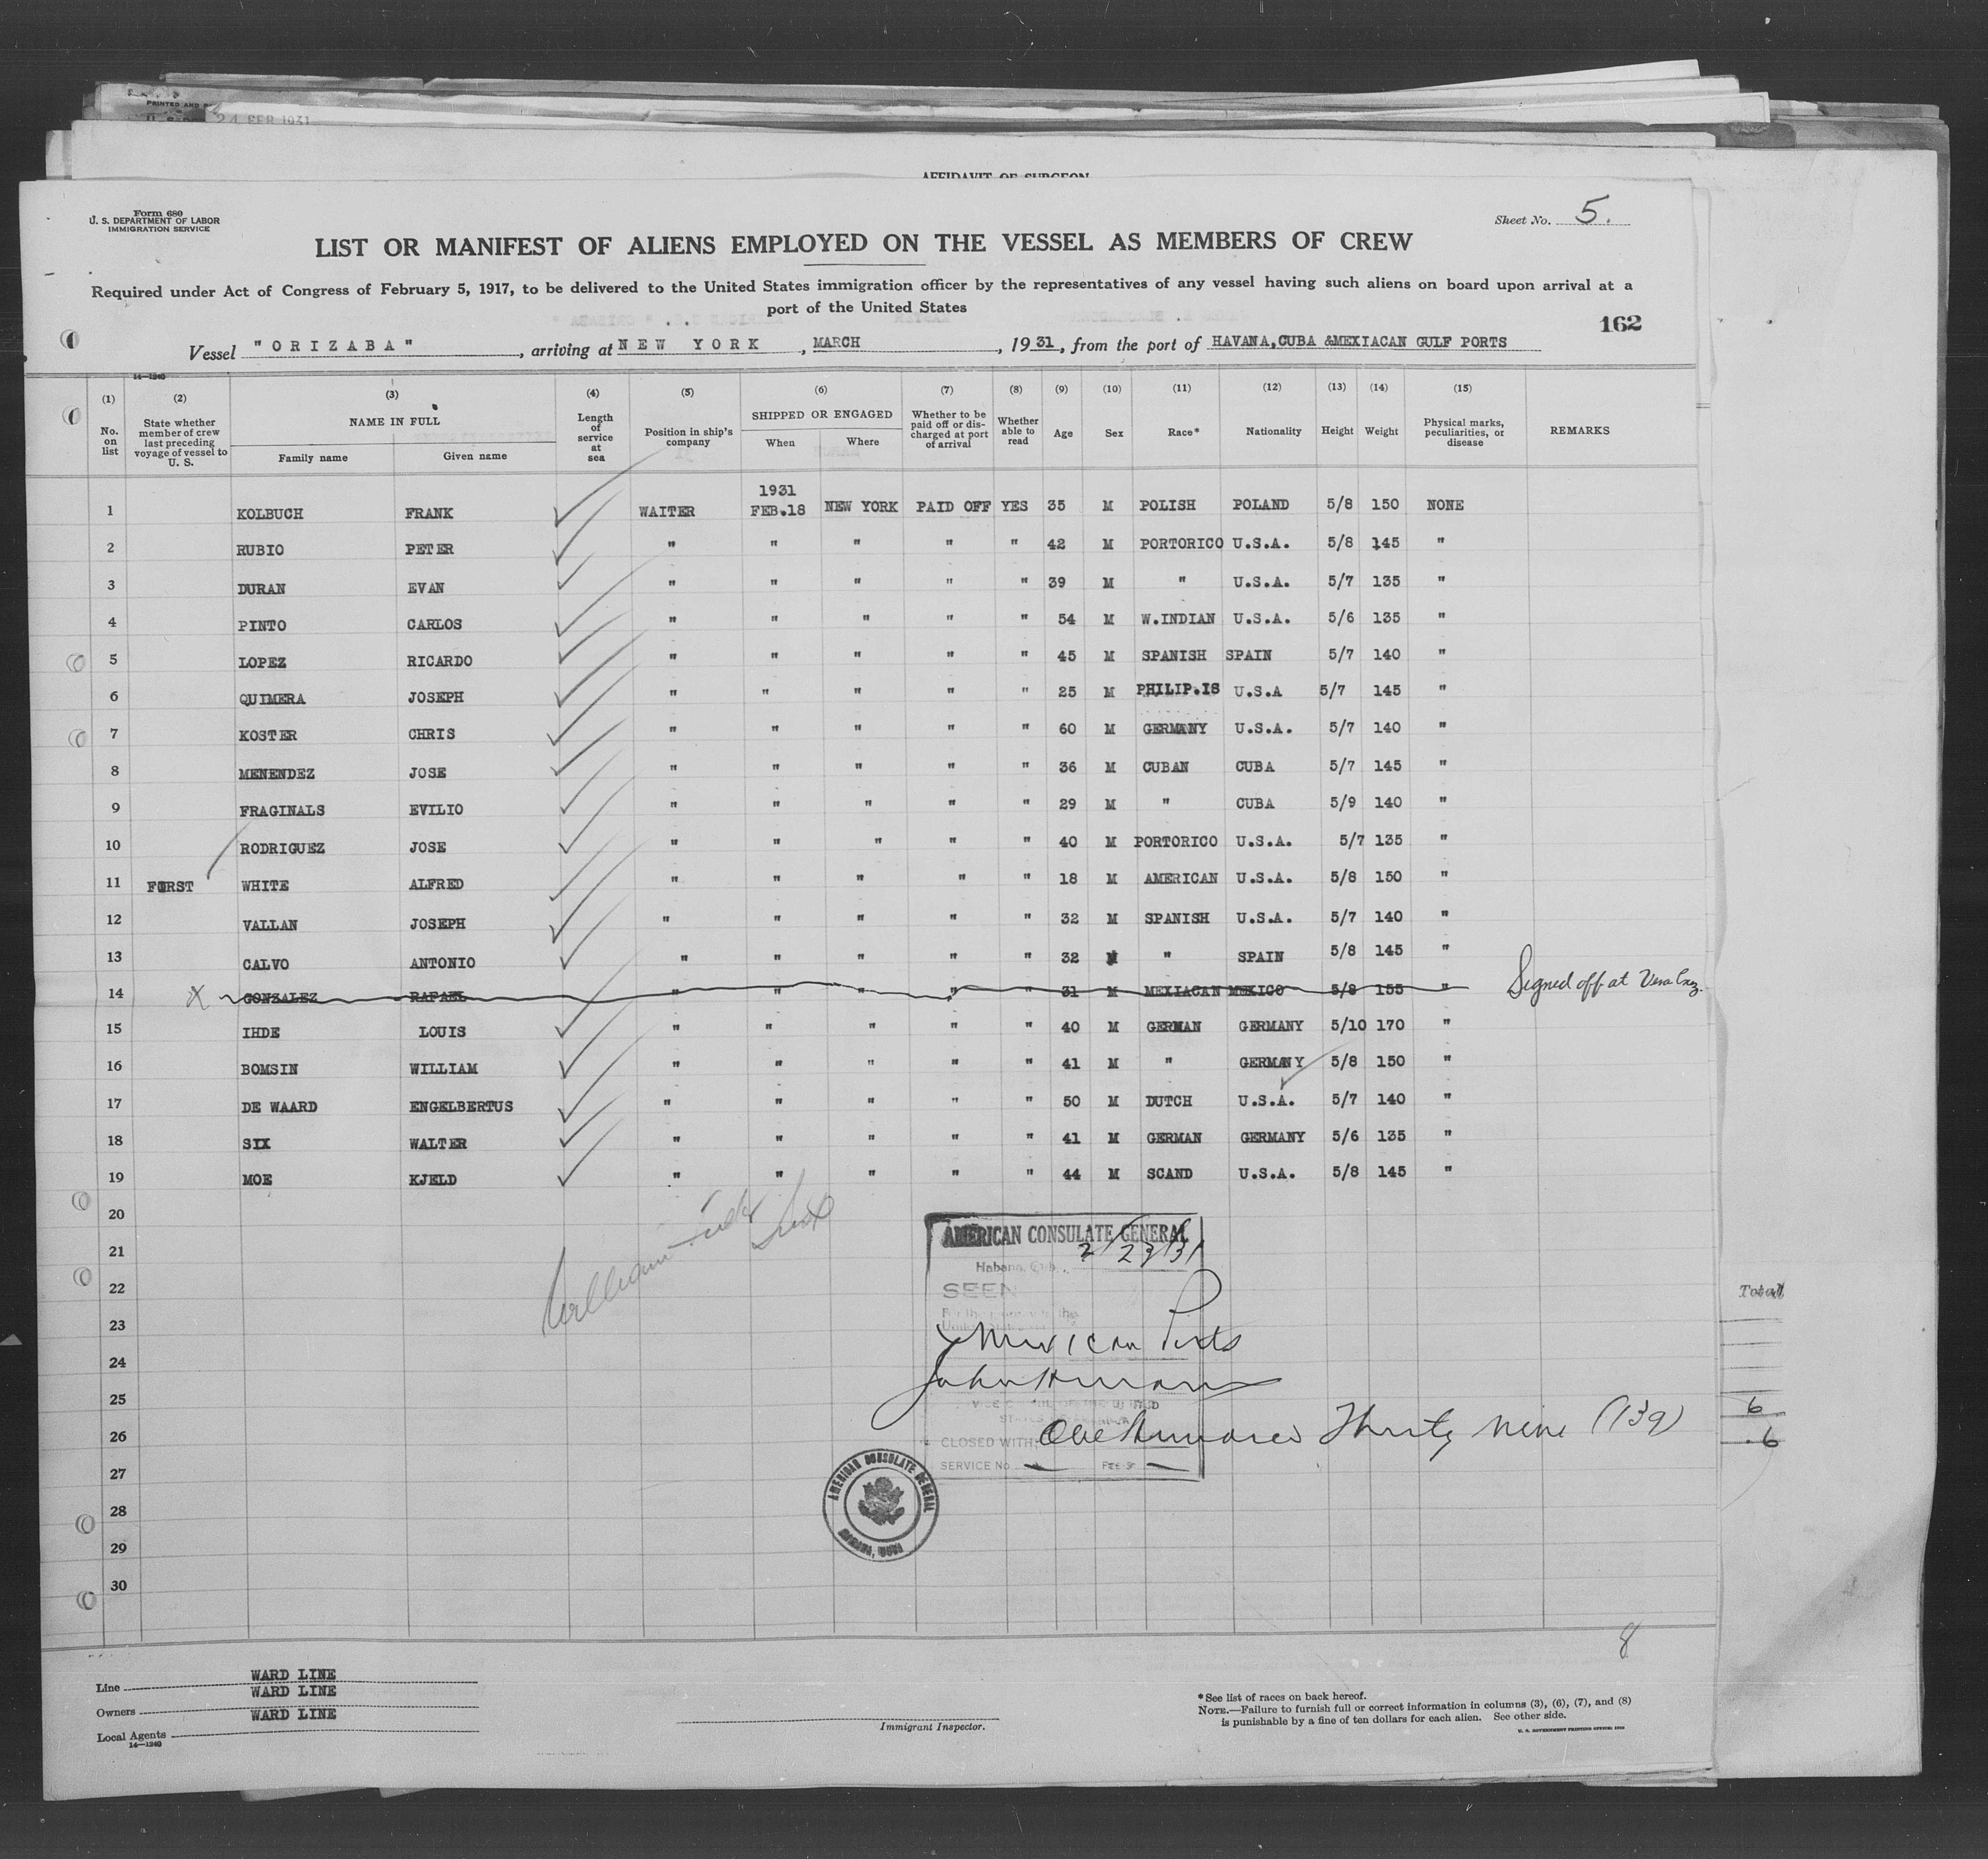 PRINTED AND
24 FEB 1931
AFFIDAVIT OF SURGEON
Form 680
U. S. DEPARTMENT OF LABOR
IMMIGRATION SERVICE
Sheet No. 5.
LIST OR MANIFEST OF ALIENS EMPLOYED ON THE VESSEL AS MEMBERS OF CREW
Required under Act of Congress of February 5, 1917, to be delivered to the United States immigration officer by the representatives of any vessel having such aliens on board upon arrival at a
port of the United States
162
Vessel "ORIZABA", arriving at NEW YORK, MARCH, 1931, from the port of HAVANA,CUBA &MEXIACAN GULF PORTS
14—1240
(1) No. on list
(2) State whether member of crew last preceding voyage of vessel to U. S.
(3) NAME IN FULL
Family name Given name
(4) Length of service at sea
(5) Position in ship's company
(6) SHIPPED OR ENGAGED
When Where
(7) Whether to be paid off or discharged at port of arrival
(8) Whether able to read
(9) Age
(10) Sex
(11) Race*
(12) Nationality
(13) Height
(14) Weight
(15) Physical marks, peculiarities, or disease
REMARKS
1 KOLBUCH FRANK WAITER 1931 FEB.18 NEW YORK PAID OFF YES 35 M POLISH POLAND 5/8 150 NONE
2 RUBIO PETER " " " " " 42 M PORTORICO U.S.A. 5/8 145 "
3 DURAN EVAN " " " " " 39 M " U.S.A. 5/7 135 "
4 PINTO CARLOS " " " " " 54 M W.INDIAN U.S.A. 5/6 135 "
5 LOPEZ RICARDO " " " " " 45 M SPANISH SPAIN 5/7 140 "
6 QUIMERA JOSEPH " " " " " 25 M PHILIP.IS U.S.A 5/7 145 "
7 KOSTER CHRIS " " " " " 60 M GERMANY U.S.A. 5/7 140 "
8 MENENDEZ JOSE " " " " " 36 M CUBAN CUBA 5/7 145 "
9 FRAGINALS EVILIO " " " " " 29 M " CUBA 5/9 140 "
10 RODRIGUEZ JOSE " " " " " 40 M PORTORICO U.S.A. 5/7 135 "
11 FIRST WHITE ALFRED " " " " " 18 M AMERICAN U.S.A. 5/8 150 "
12 VALLAN JOSEPH " " " " " 32 M SPANISH U.S.A. 5/7 140 "
13 CALVO ANTONIO " " " " " 32 M " SPAIN 5/8 145 "
14 X GONZALEZ RAFAEL " " " " " 31 M MEXIACAN MEXICO 5/8 155 " Signed off at Vera Cruz.
15 IHDE LOUIS " " " " " 40 M GERMAN GERMANY 5/10 170 "
16 BOMSIN WILLIAM " " " " " 41 M " GERMANY 5/8 150 "
17 DE WAARD ENGELBERTUS " " " " " 50 M DUTCH U.S.A. 5/7 140 "
18 SIX WALTER " " " " " 41 M GERMAN GERMANY 5/6 135 "
19 MOE KJELD " " " " " 44 M SCAND U.S.A. 5/8 145 "
20
21
22
23
24
25
26
27
28
29
30
William
AMERICAN CONSULATE GENERAL
Habana, Cuba 2/27/31
SEEN
Mexican Ports
CLOSED WITH One Hundred Thirty Nine (139)
SERVICE No. — FEE $ —
AMERICAN CONSULATE GENERAL
HABANA, CUBA
Total
6
6
8
Line WARD LINE
Owners WARD LINE
Local Agents WARD LINE
14—1240
Immigrant Inspector.
*See list of races on back hereof.
NOTE.—Failure to furnish full or correct information in columns (3), (6), (7), and (8)
is punishable by a fine of ten dollars for each alien. See other side.
U. S. GOVERNMENT PRINTING OFFICE: